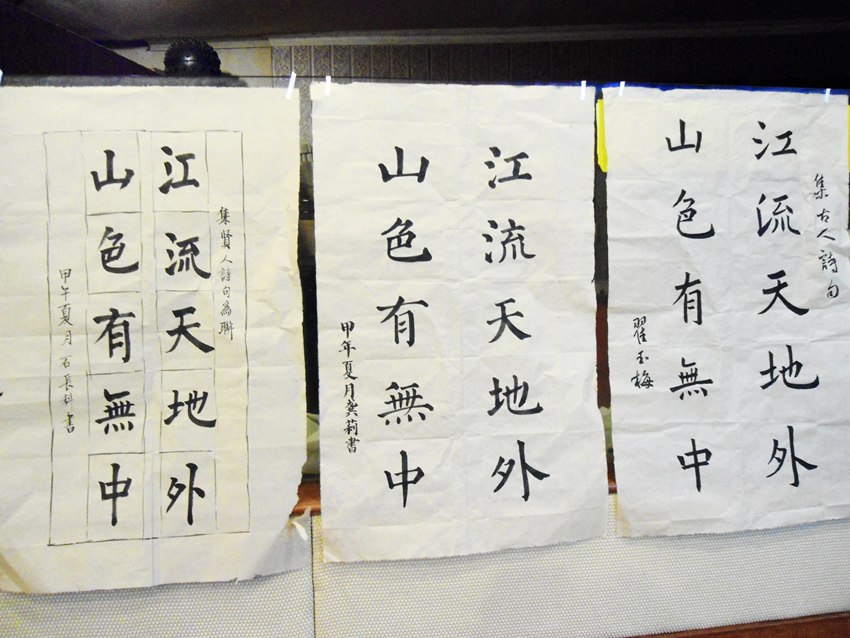 集賢人詩句為聯
江流天地外
山色有無中
甲午夏月石長科書
江流天地外
山色有無中
甲年夏月龚莉書
集古人詩句
江流天地外
山色有無中
翟玉梅